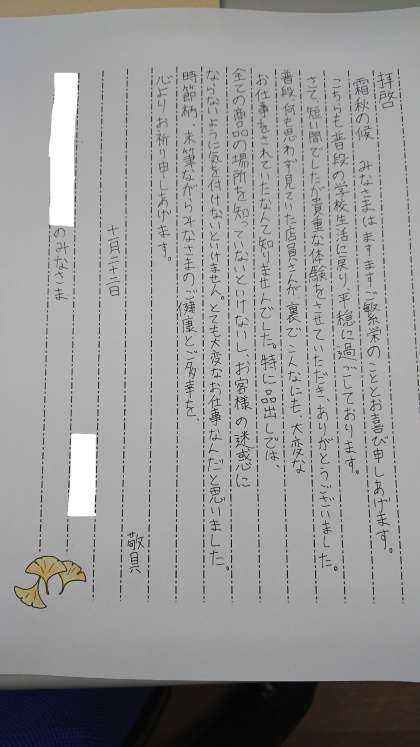 拝啓
霜秋の候 みなさまはますますご繁栄のこととお喜び申しあげます。
こちらも普段の学校生活に戻り、平穏に過ごしております。
さて、短い間でしたが貴重な体験をさせていただき、ありがとうございました。
普段何も思わず見ていた店員さんが裏でこんなにも、大変な
お仕事をされていたなんて知りませんでした。特に品出しでは、
全ての商品の場所を知っていないといけないし、お客様の迷惑に
ならないように気を付けないといけません。とても大変なお仕事なんだと思いました。
時節柄 末筆ながらみなさまのご健康とご多幸を、
心よりお祈り申しあげます。
敬具
十一月二十二日
のみなさま